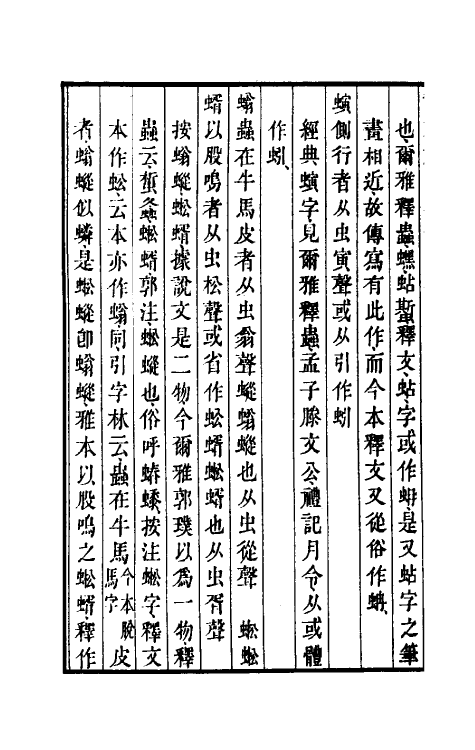 也爾雅釋蟲蛅斯釋文蛅字或作蚦是又蛅字之筆
畫相近故傳寫有此作而今本釋文又從俗作
螾側行者从虫寅聲或从引作蚓
經典螾字見爾雅釋蟲孟子滕文公禮記月令从或體
作蚓
螉蟲在牛馬皮者从虫翁聲䗥螉䗥也从虫從聲　蜙蜙
蝑以股鳴者从虫松聲或省作蚣蝑蜙蝑也从虫胥聲
按螉䗥蜙蝑據說文是二物今爾雅郭璞以爲一物釋
蟲云蜤螽蜙蝑郭注蜙䗥也俗呼蝽按注蜙字釋文
本作蚣云本亦作螉同引字林云蟲在牛馬今本脫馬字皮
者螉䗥似是蜙䗥卽螉䗥雅本以股鳴之蜙蝑釋作